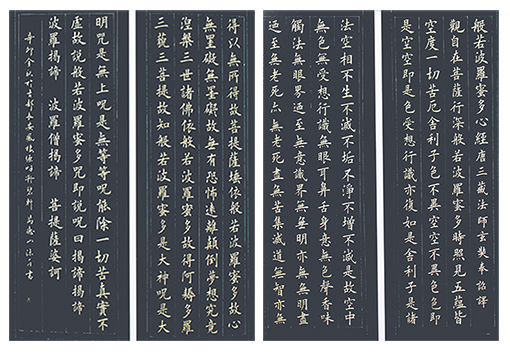 般若波羅蜜多心經唐三藏法師玄奘奉詔譯
觀自在菩薩行深般若波羅蜜多時照見五蘊皆
空度一切苦厄舍利子色不異空空不異色色即
是空空即是色受想行識亦復如是舍利子是諸
法空相不生不滅不垢不淨不增不減是故空中
無色無受想行識無眼耳鼻舌身意無色聲香味
觸法無眼界迺至無意識界無無明亦無無明盡
迺至無老死亦無老死盡無苦集滅道無智亦無
得以無所得故菩提薩埵依般若波羅蜜多故心
無罣礙無罣礙故無有恐怖遠離顛倒夢想究竟
涅槃三世諸佛依般若波羅蜜多故得阿耨多羅
三藐三菩提故知般若波羅蜜多是大神呪是大
明呪是無上呪是無等等呪能除一切苦真實不
虛故說般若波羅蜜多呪即說呪曰揭諦揭諦
波羅揭諦　波羅僧揭諦　菩提薩婆訶